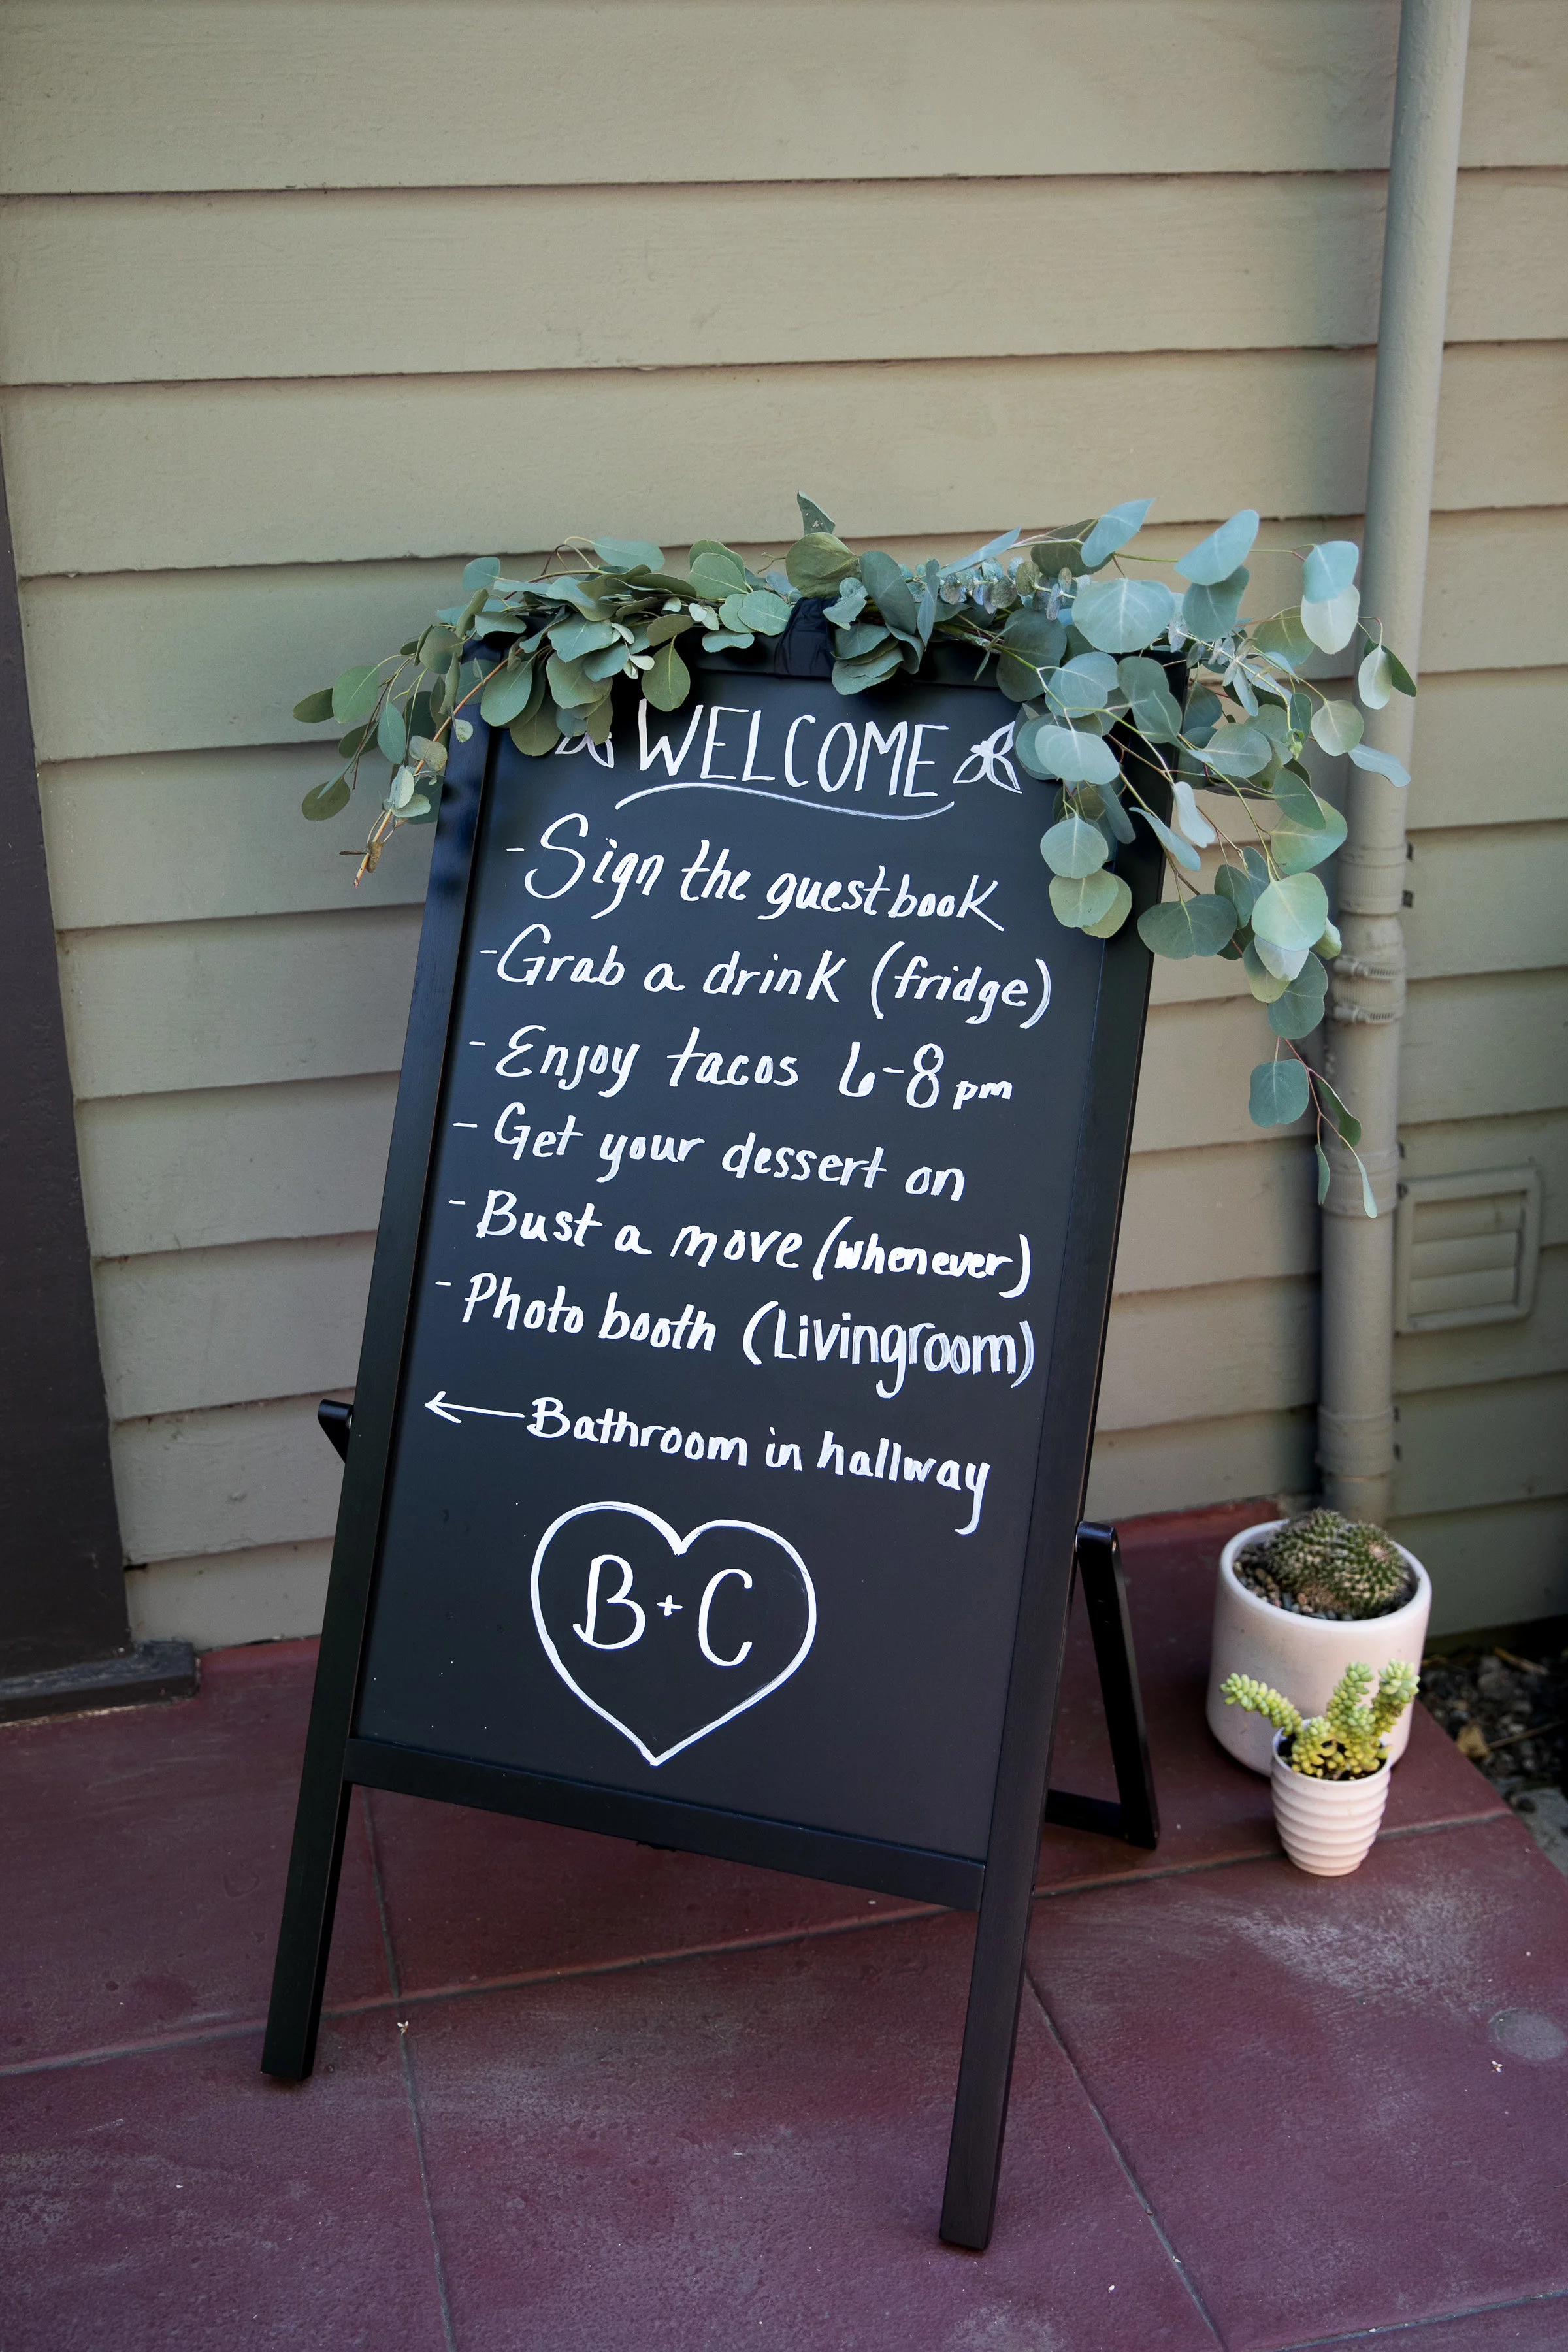 WELCOME
- Sign the guestbook
- Grab a drink (fridge)
- Enjoy tacos 6-8pm
- Get your dessert on
- Bust a move (whenever)
- Photo booth (Livingroom)
← Bathroom in hallway
B+C